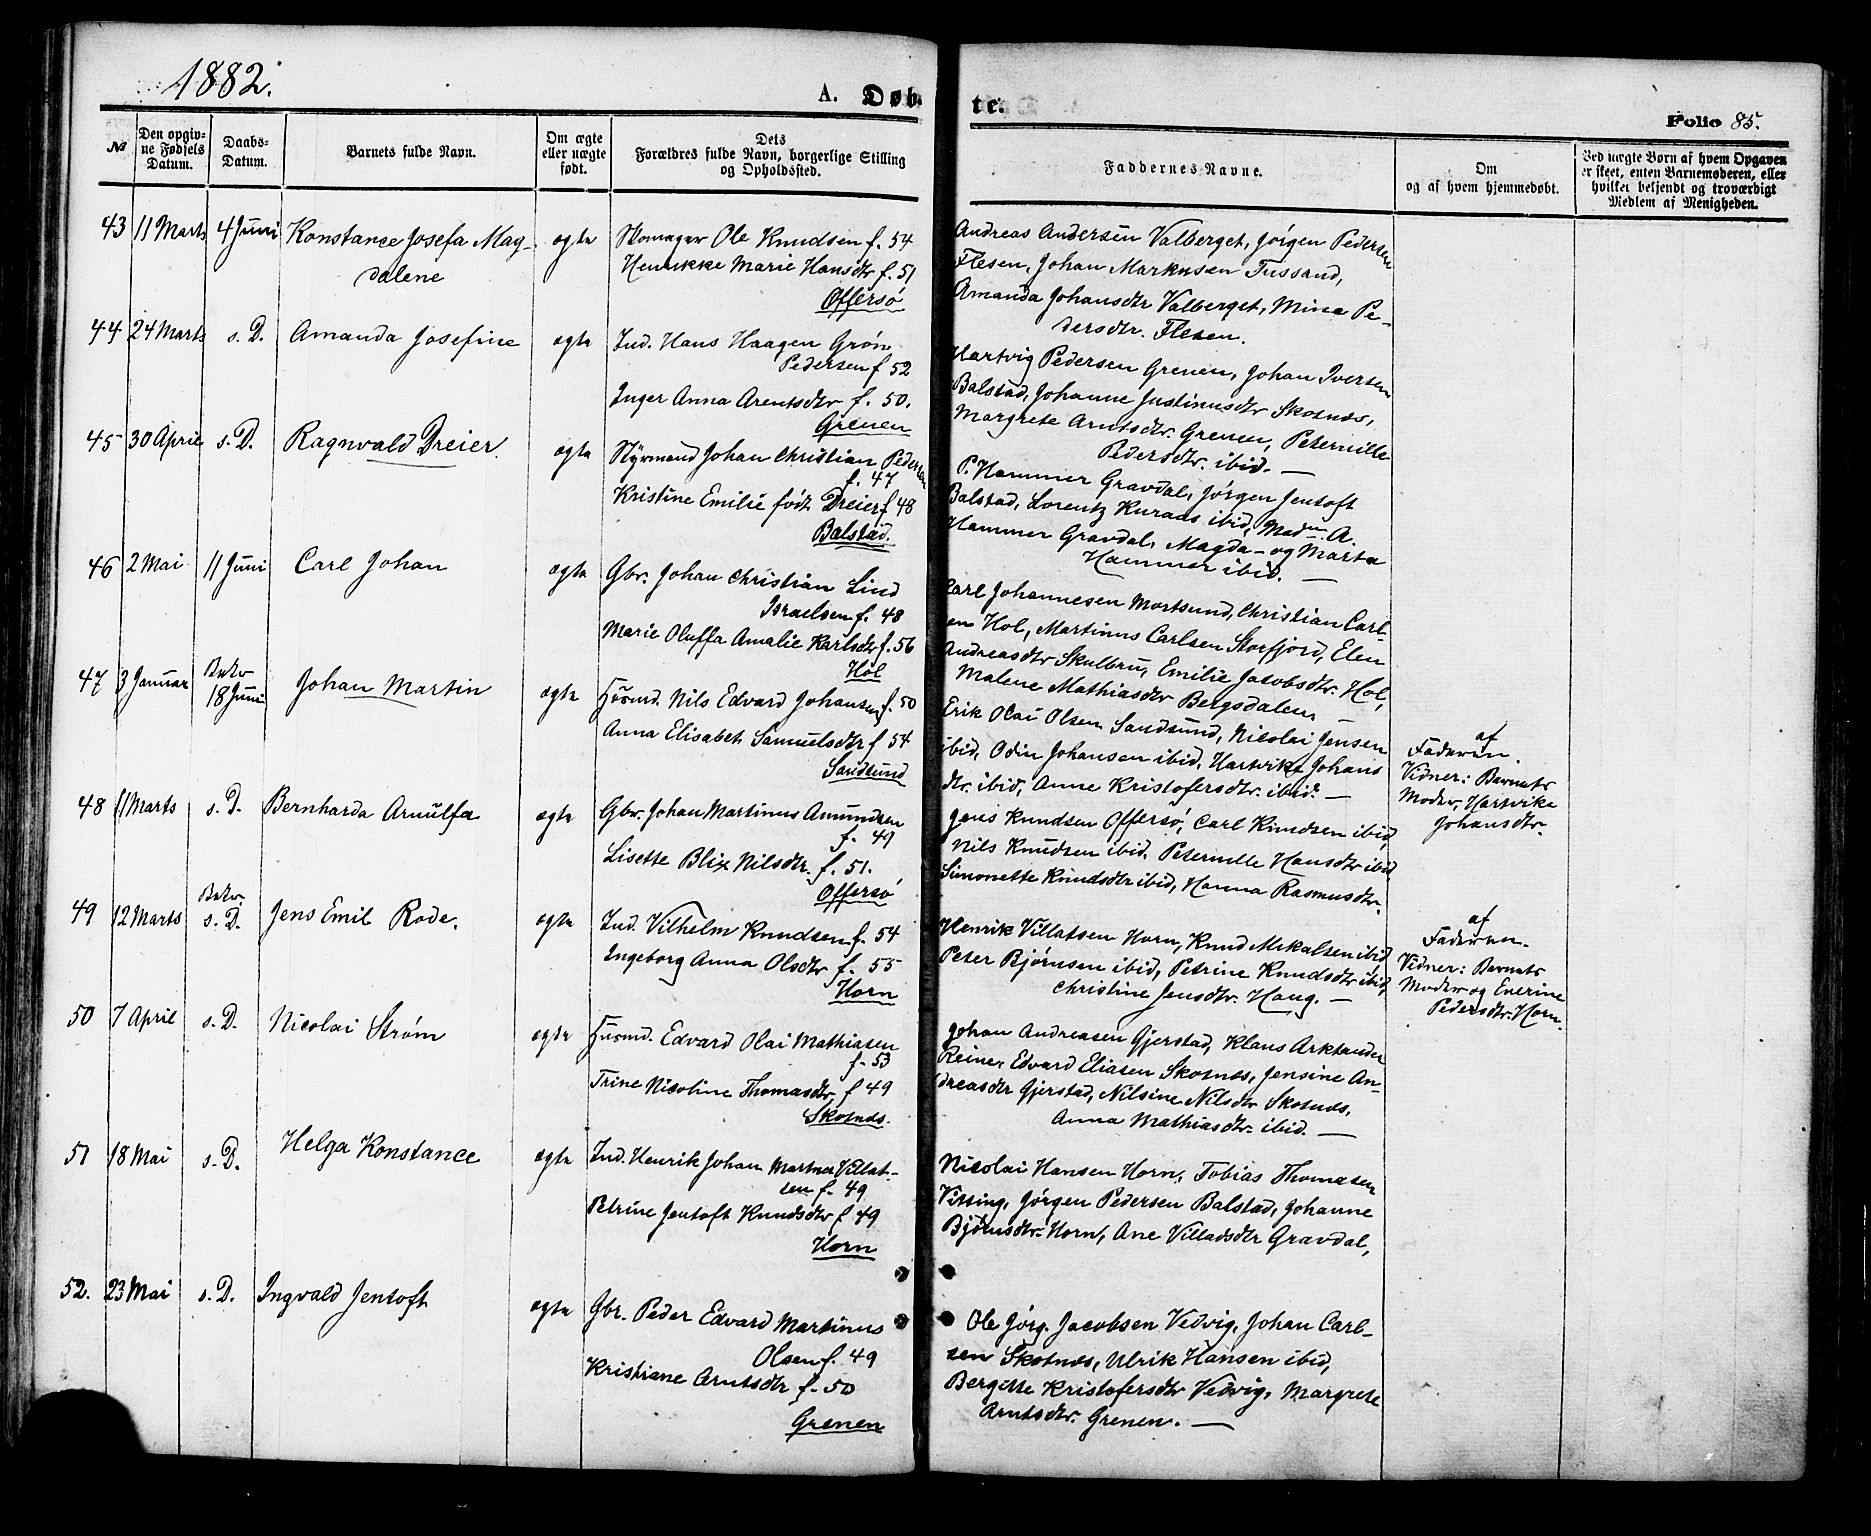 1882.
A. Døbte.
Folio 85.
№
Den opgivne Fødsels Datum.
Daabs-Datum.
Barnets fulde Navn.
Om ægte eller uægte født.
Dets Forældres fulde Navn, borgerlige Stilling og Opholdssted.
Faddernes Navne.
Om og af hvem hjemmedøbt.
Ved uægte Børn af hvem Opgaven er skeet, enten Barnemoderen, eller hvilket bekjendt og troværdigt Medlem af Menigheden.
43 11 Marts 4 Juni Konstance Josefa Mag-
dalene
ægte
Skomager Ole Knudsen f. 54
Henrikke Marie Hansdtr f. 51
Offersø
Andreas Andersen Valberget, Jørgen Pedersen
Flesen, Johan Markusen Tussand,
Amanda Johansdtr Valberget, Mine Pe-
dersdtr. Flesen.
44 24 Marts s. D. Amanda Josefine
ægte
Ind. Hans Haagen Grøn
Pedersen f 52
Inger Anna Arentsdtr f. 50.
Grenen
Hartvig Pedersen Grenen, Johan Iversen
Balstad, Johanne Justinusdtr Skotnæs,
Margrete Arntsdtr. Grenen, Peternille
Pedersdtr. ibid. —
45 30 April s. D. Ragnvald Dreier.
ægte
Styrmand Johan Christian Pedersen
f. 47
Kristine Emilie født Dreier f 48
Balstad.
P. Hammer Gravdal, Jørgen Jentoft
Balstad, Lorentz Kuraas ibid, Madm. A.
Hammer Gravdal, Magda- og Marta
Hammer ibid. —
46 2 Mai 11 Juni Carl Johan
ægte
Gbr. Johan Christian Lind
Israelsen f. 48
Marie Oluffa Amalie Karlsdtr f. 56
Hol
Carl Johannesen Mortsund, Christian Carl-
sen Hol, Martinus Carlsen Storfjord, Elen
Andreasdtr Skulbru, Emilie Jacobsdtr. Hol,
Malene Mathiasdtr Bergsdalen
47 3 Januar Bekr 18 Juni Johan Martin
ægte
Husmd. Nils Edvard Johansen f. 50
Anna Elisabet Samuelsdtr f 54
Sandsund
Erik Olai Olsen Sandsund, Nicolai Jensen
ibid, Odin Johansen ibid, Hartvikke Johans
dtr. ibid, Anne Kristofersdtr. ibid. —
af
Faderen.
Vidner: Barnets
Moder, Hartvike
Johansdtr.
48 11 Marts s. D. Bernharda Arnulfa
ægte
Gbr. Johan Martinus Amundsen
f. 49
Lisette Blix Nilsdtr. f. 51.
Offersø
Jens Knudsen Offersø, Carl Knudsen ibid,
Nils Knudsen ibid. Peternille Hansdtr ibid
Simonette Knudsdtr ibid, Hanna Rasmusdtr.
49 12 Marts Bekr. s. D. Jens Emil Rode.
ægte
Ind. Vilhelm Knudsen f. 54
Ingeborg Anna Olsdtr f. 55
Horn
Henrik Villatsen Horn, Knud Mikalsen ibid,
Peter Bjørnsen ibid, Petrine Knudsdtr ibid,
Christine Jensdtr. Haug. —
af
Faderen.
Vidner: Barnets
Moder og Enerine
Pedersdtr. Horn.
50 7 April s. D. Nicolai Strøm
ægte
Husmd. Edvard Olai Mathiasen
f. 53
Trine Nicoline Thomasdtr. f 49
Skotnæs.
Johan Andreasen Gjerstad, Klaus Arktander
Reine, Edvard Eliasen Skotnæs, Jensine An-
dreasdtr Gjerstad, Nilsine Nilsdtr Skotnæs,
Anna Mathiasdtr. ibid. —
51 18 Mai s. D. Helga Konstance
ægte
Ind. Henrik Johan Martner Villat-
sen f. 49
Petrine Jentoft Knudsdtr f 49
Horn
Nicolai Hansen Horn, Tobias Thomasen
Vitting, Jørgen Pedersen Balstad, Johanne
Bjørnsdtr. Horn, Ane Villadsdtr Gravdal,
52. 23 Mai s. D. Ingvald Jentoft
ægte
Gbr. Peder Edvard Martinus
Olsen f. 49
Kristiane Arntsdtr f. 50
Grenen
Ole Jørg. Jacobsen Vedvig, Johan Carl-
sen Skotnæs, Ulrik Hansen ibid,
Bergitte Kristofersdtr Vedvig, Margrete
Arntsdtr. Grenen. —